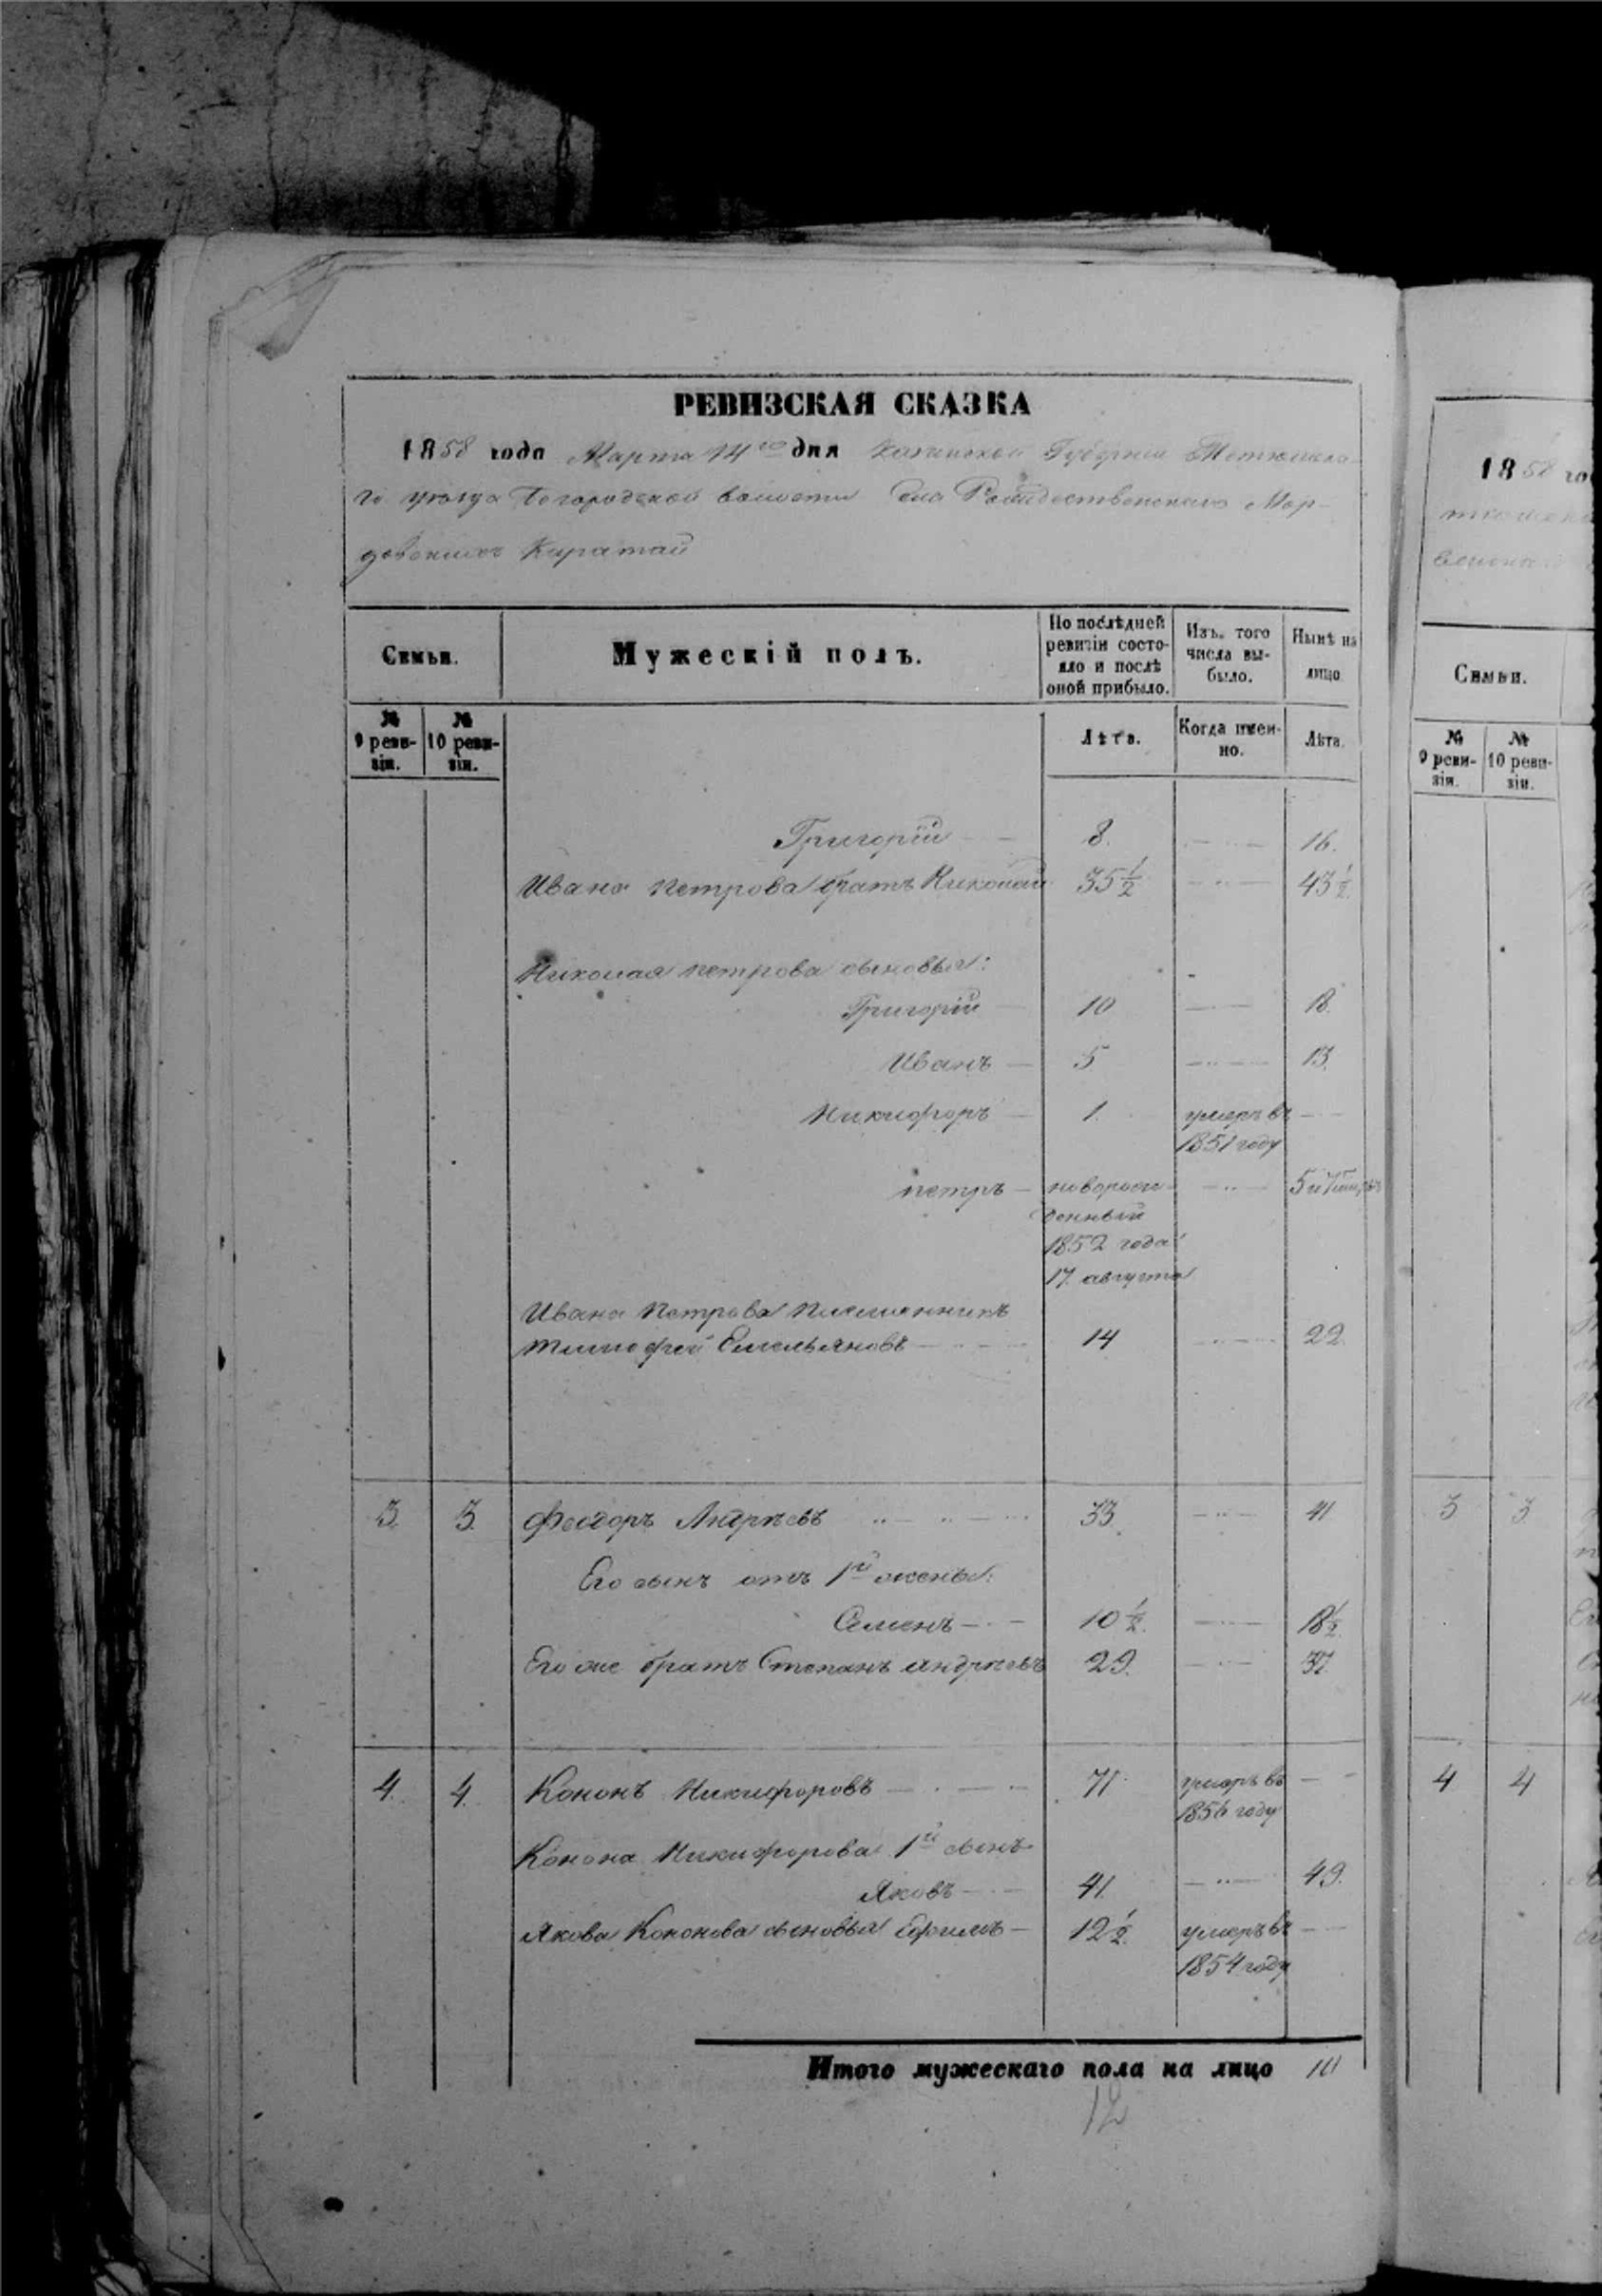 РЕВИЗСКАЯ СКАЗКА
1858 года Марта 14го дня Казанской Губерніи Тетюшска-
го уѣзда Богородской волости Села Рождественскаго Мор-
довскихъ Каратай
Семьи.
Мужескій полъ.
По послѣдней ревизіи состояло и послѣ оной прибыло.
Изъ того числа выбыло.
Нынѣ на лицо.
№ 9 ревизіи.
№ 10 ревизіи.
Лѣта.
Когда именно.
Лѣта.
Григорій 8. 16.
Ивана Петрова братъ Николай 35½ 43½.
Николая Петрова сыновья:
Григорій 10 18.
Иванъ 5 13.
Никифоръ 1. умеръ въ
1851 году
Петръ новорож-
денный
1852 года
17 августа
Ивана Петрова племянникъ
Тимофей Емельяновъ 14 22.
3. 3. Феодоръ Андрѣевъ 33. 41
Его сынъ отъ 1й жены:
Семенъ 10½. 18½.
Его же братъ Степанъ Андрѣевъ 29. 37.
4. 4. Кононъ Никифоровъ 71 умеръ въ
1856 году
Конона Никифорова 1й сынъ
Яковъ 41. 49.
Якова Кононова сыновья Ефимъ 12½. умеръ въ
1854 году
Итого мужескаго пола на лицо 10
12
1858 го
Семьи.
№ 9 ревизіи.
№ 10 ревизіи.
3 3.
4 4